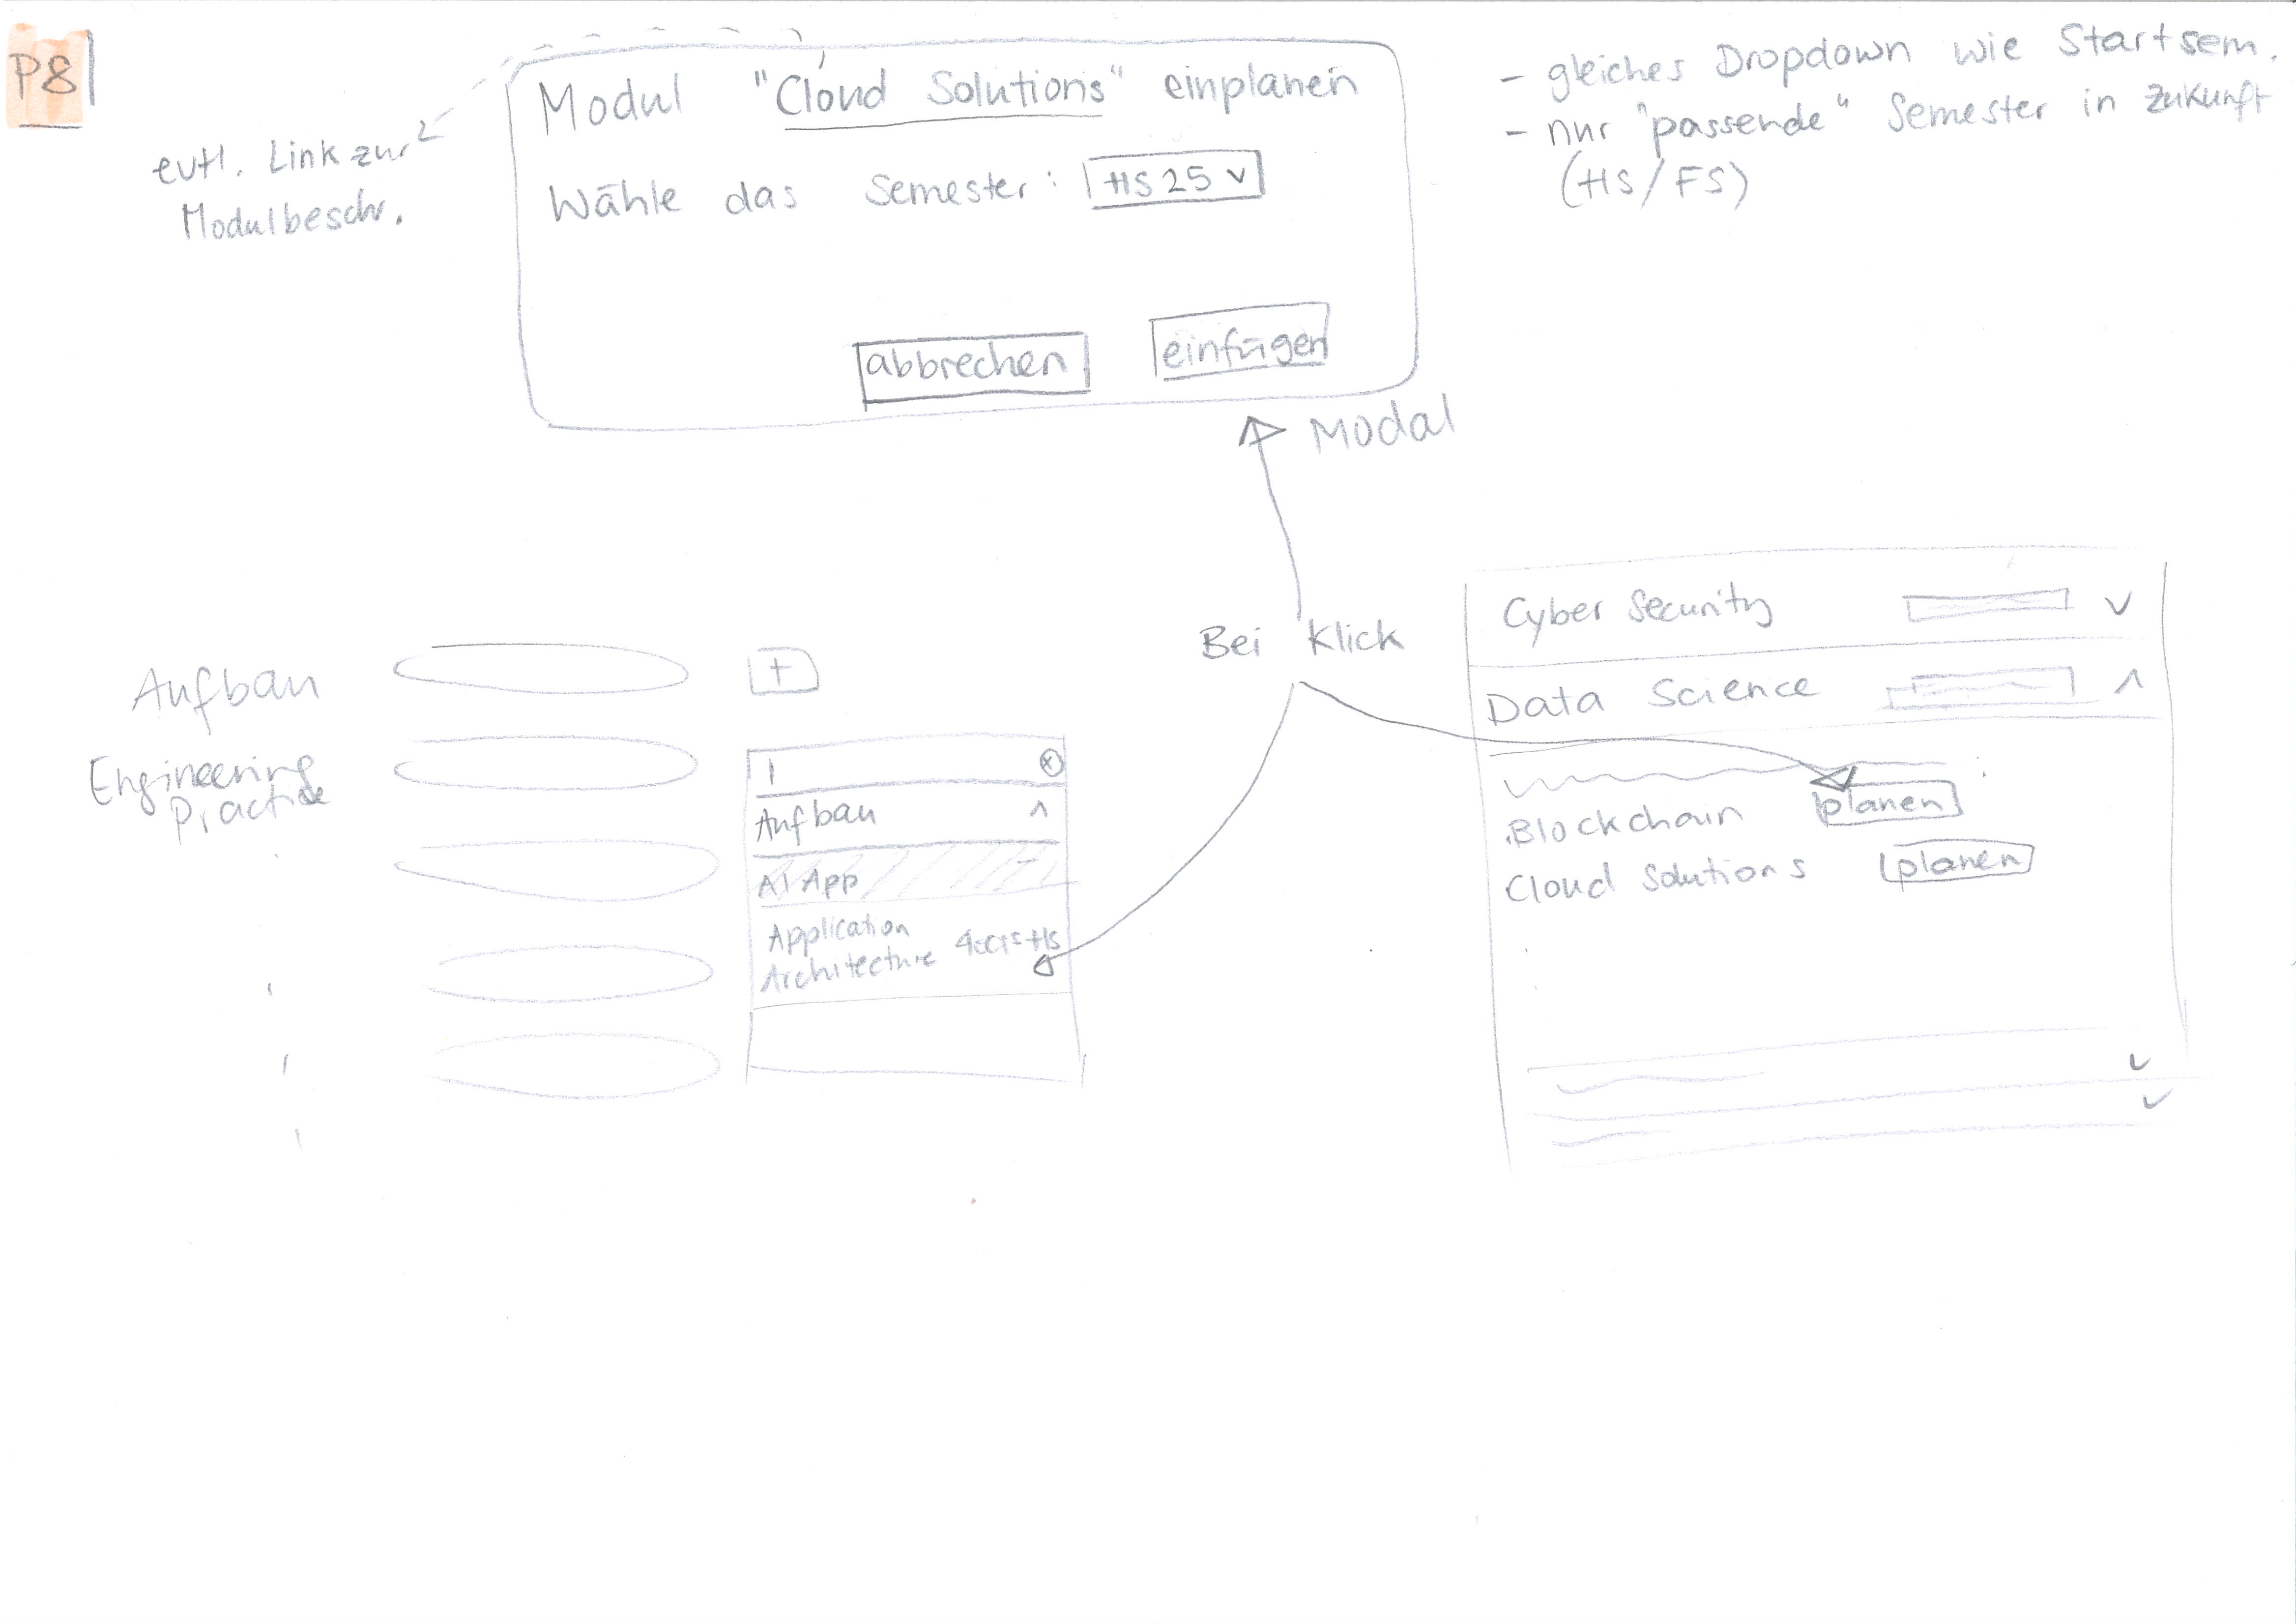 P8
Modul "Cloud Solutions" einplanen
Wähle das Semester: HS25 v
abbrechen
einfügen
evtl. Link zur
Modulbeschr.
- gleiches Dropdown wie Startsem.
- nur "passende" Semester in Zukunft
(HS/FS)
Modal
Bei Klick
Aufbau
Engineering
Practice
+
Aufbau
AI App
Application
Architecture 4ECTS HS
Cyber Security
Data Science
Blockchain planen
Cloud Solutions planen